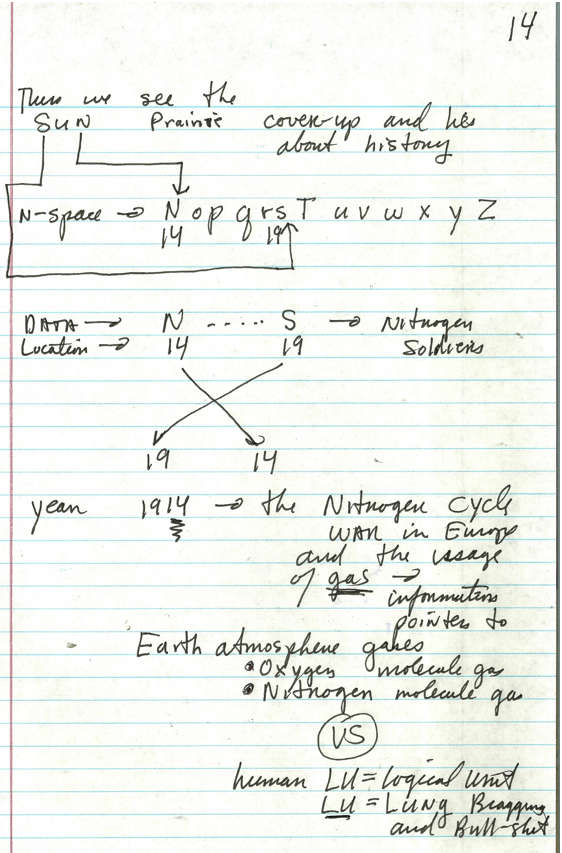 14
Thus we see the
SUN Prairie cover-up and lies
about history
N-space → N o p q r s T u v w x y Z
14 19
DATA → N ..... S → Nitrogen
Location → 14 19 Soldiers
19 14
year 1914 → the Nitrogen Cycle
WAR in Europe
and the usage
of gas →
information
pointer to
Earth atmosphere gases
• Oxygen molecule gas
• Nitrogen molecule gas
VS
human LU = Logical Unit
LU = Lung Bragging
and Bull-shet